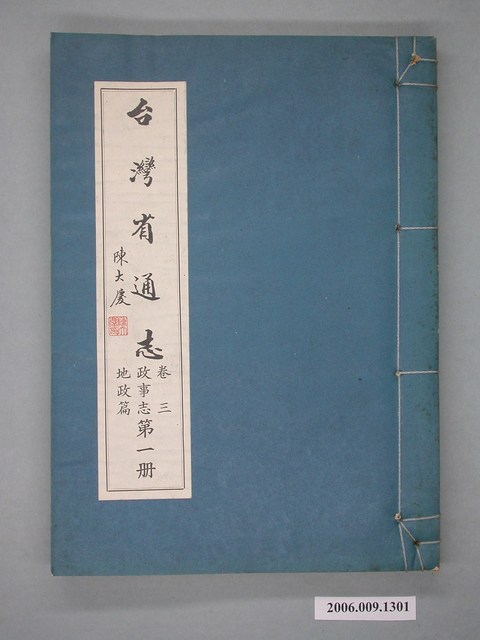 台灣省通志
陳大慶
卷三
政事志
地政篇
第一冊
2006.009.1301